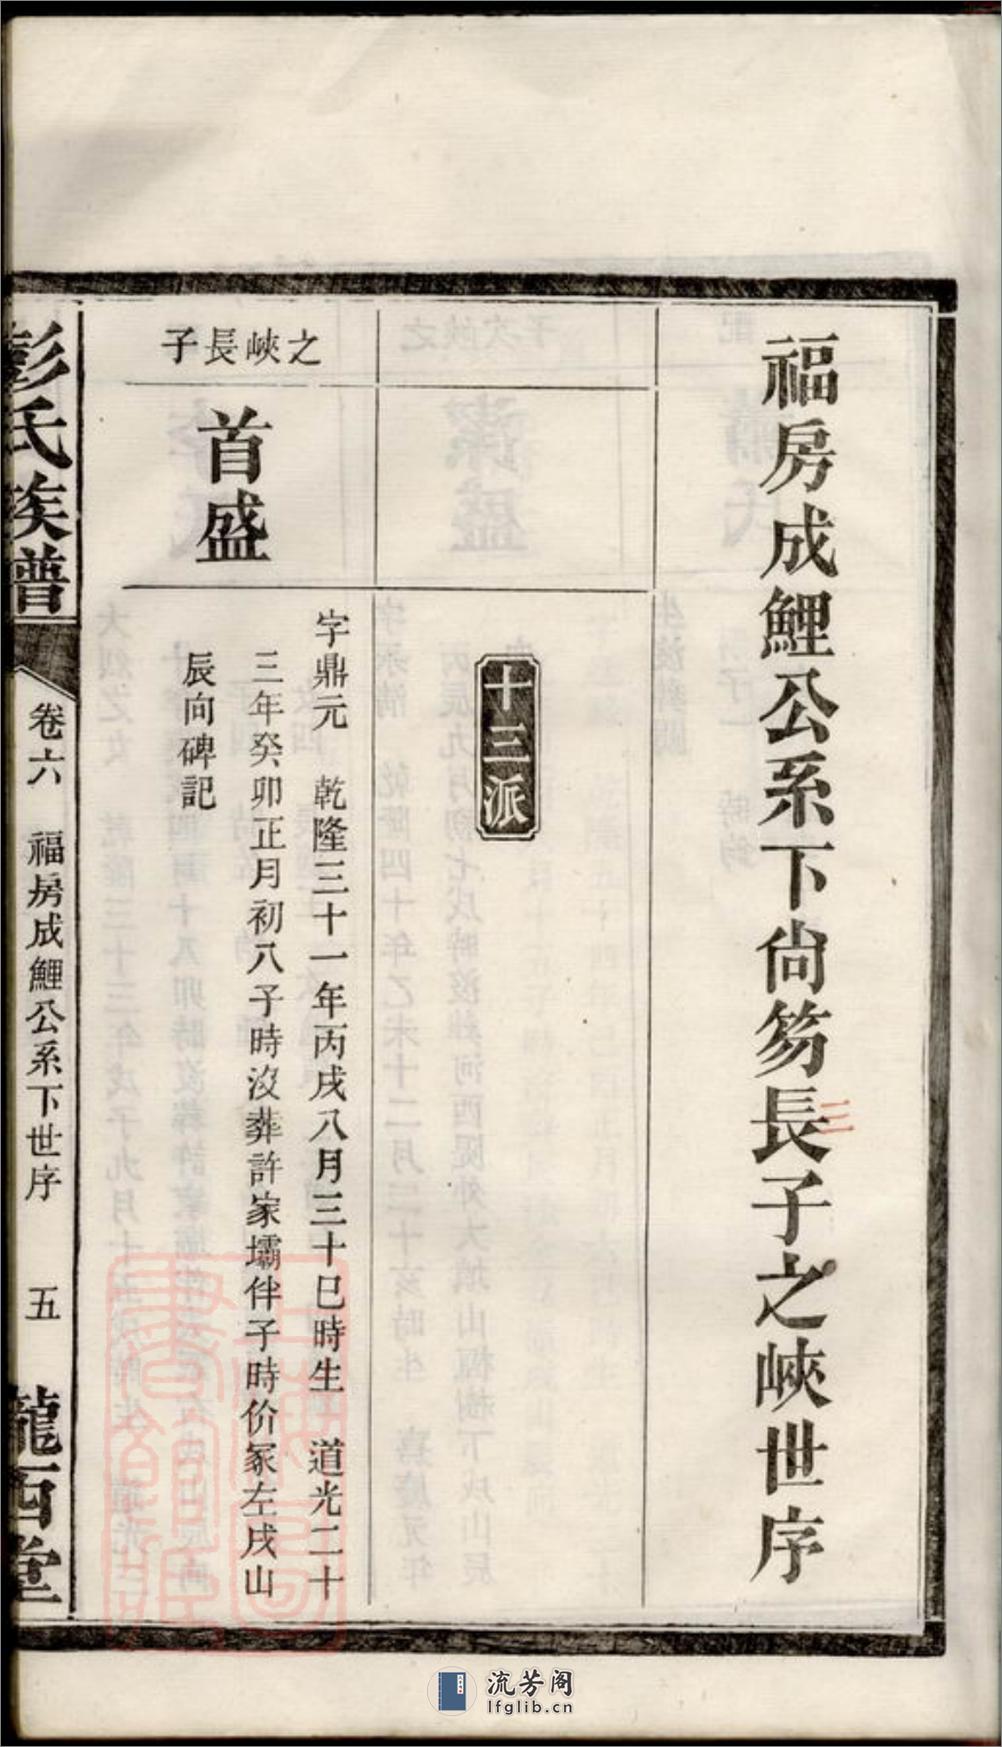 福房成鯉公系下尙笏長子之峽世序
三
十三派
之峽長子
首盛
字鼎元 乾隆三十一年丙戌八月三十巳時生 道光二十
三年癸卯正月初八子時沒葬許家壩伴子時价冢左戌山
辰向碑記
彭氏族譜
卷六 福房成鯉公系下世序 五
龍西堂
流芳阁
lfglib.cn